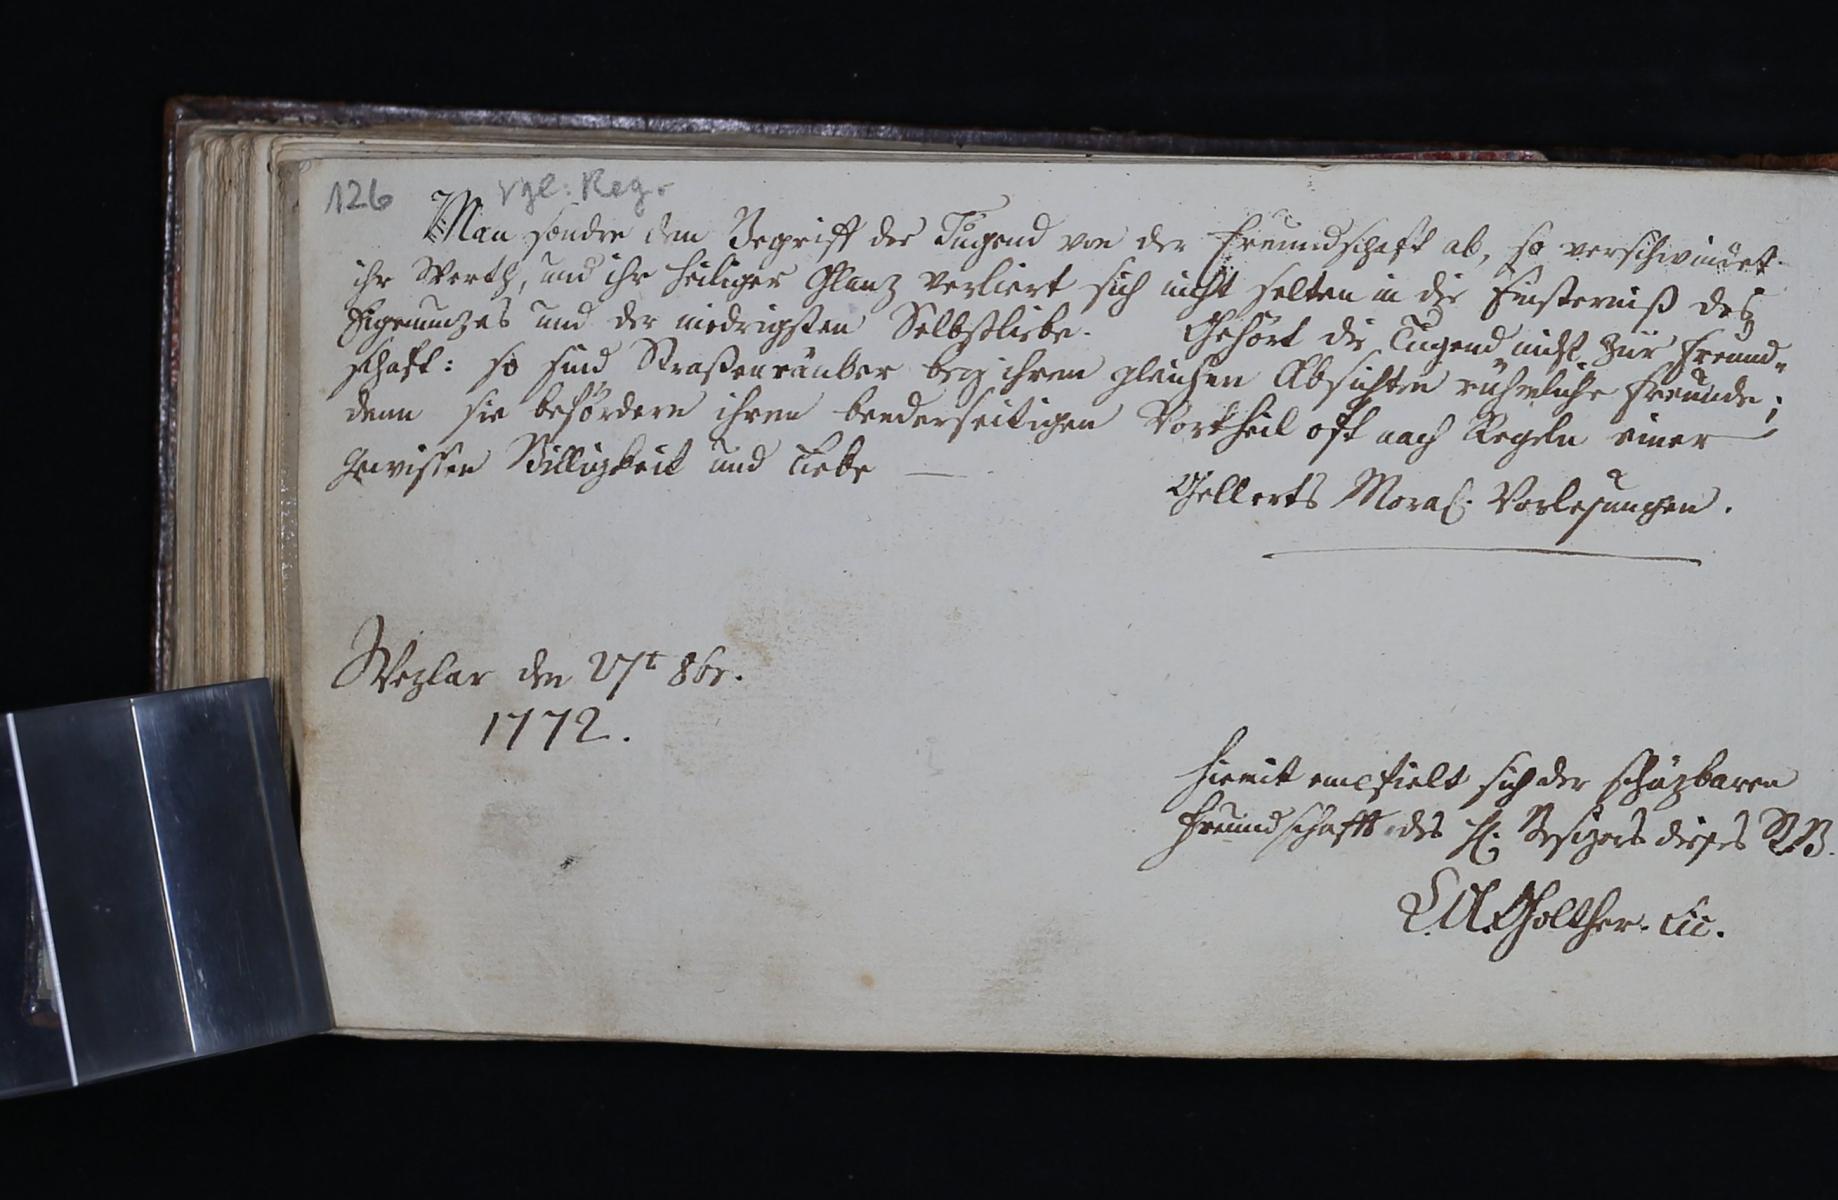 126 vgl: Reg.
Man sondre den Begriff der Tugend von der Freundschafft ab, so verschwindet
ihr Werth, und ihr heiliger Glanz verliert sich nicht selten in die Finsterniß des
Eigennuzes und der niedrigsten Selbstliebe. Gehört die Tugend nicht zur Freund„
schaft: so sind Straßenräuber bey ihren gleichen Absichten rühmliche Freunde;
denn sie befördern ihren beederseitigen Vortheil oft nach Regeln einer
gewissen Billigkeit und Liebe —
Gellerts Moral. Vorlesungen.
Wezlar den 27t 8br.
1772.
Hiemit empfielt sich der schäzbaren
Freundschafft des H. Besizers dieses StB.
Golther. Lic.